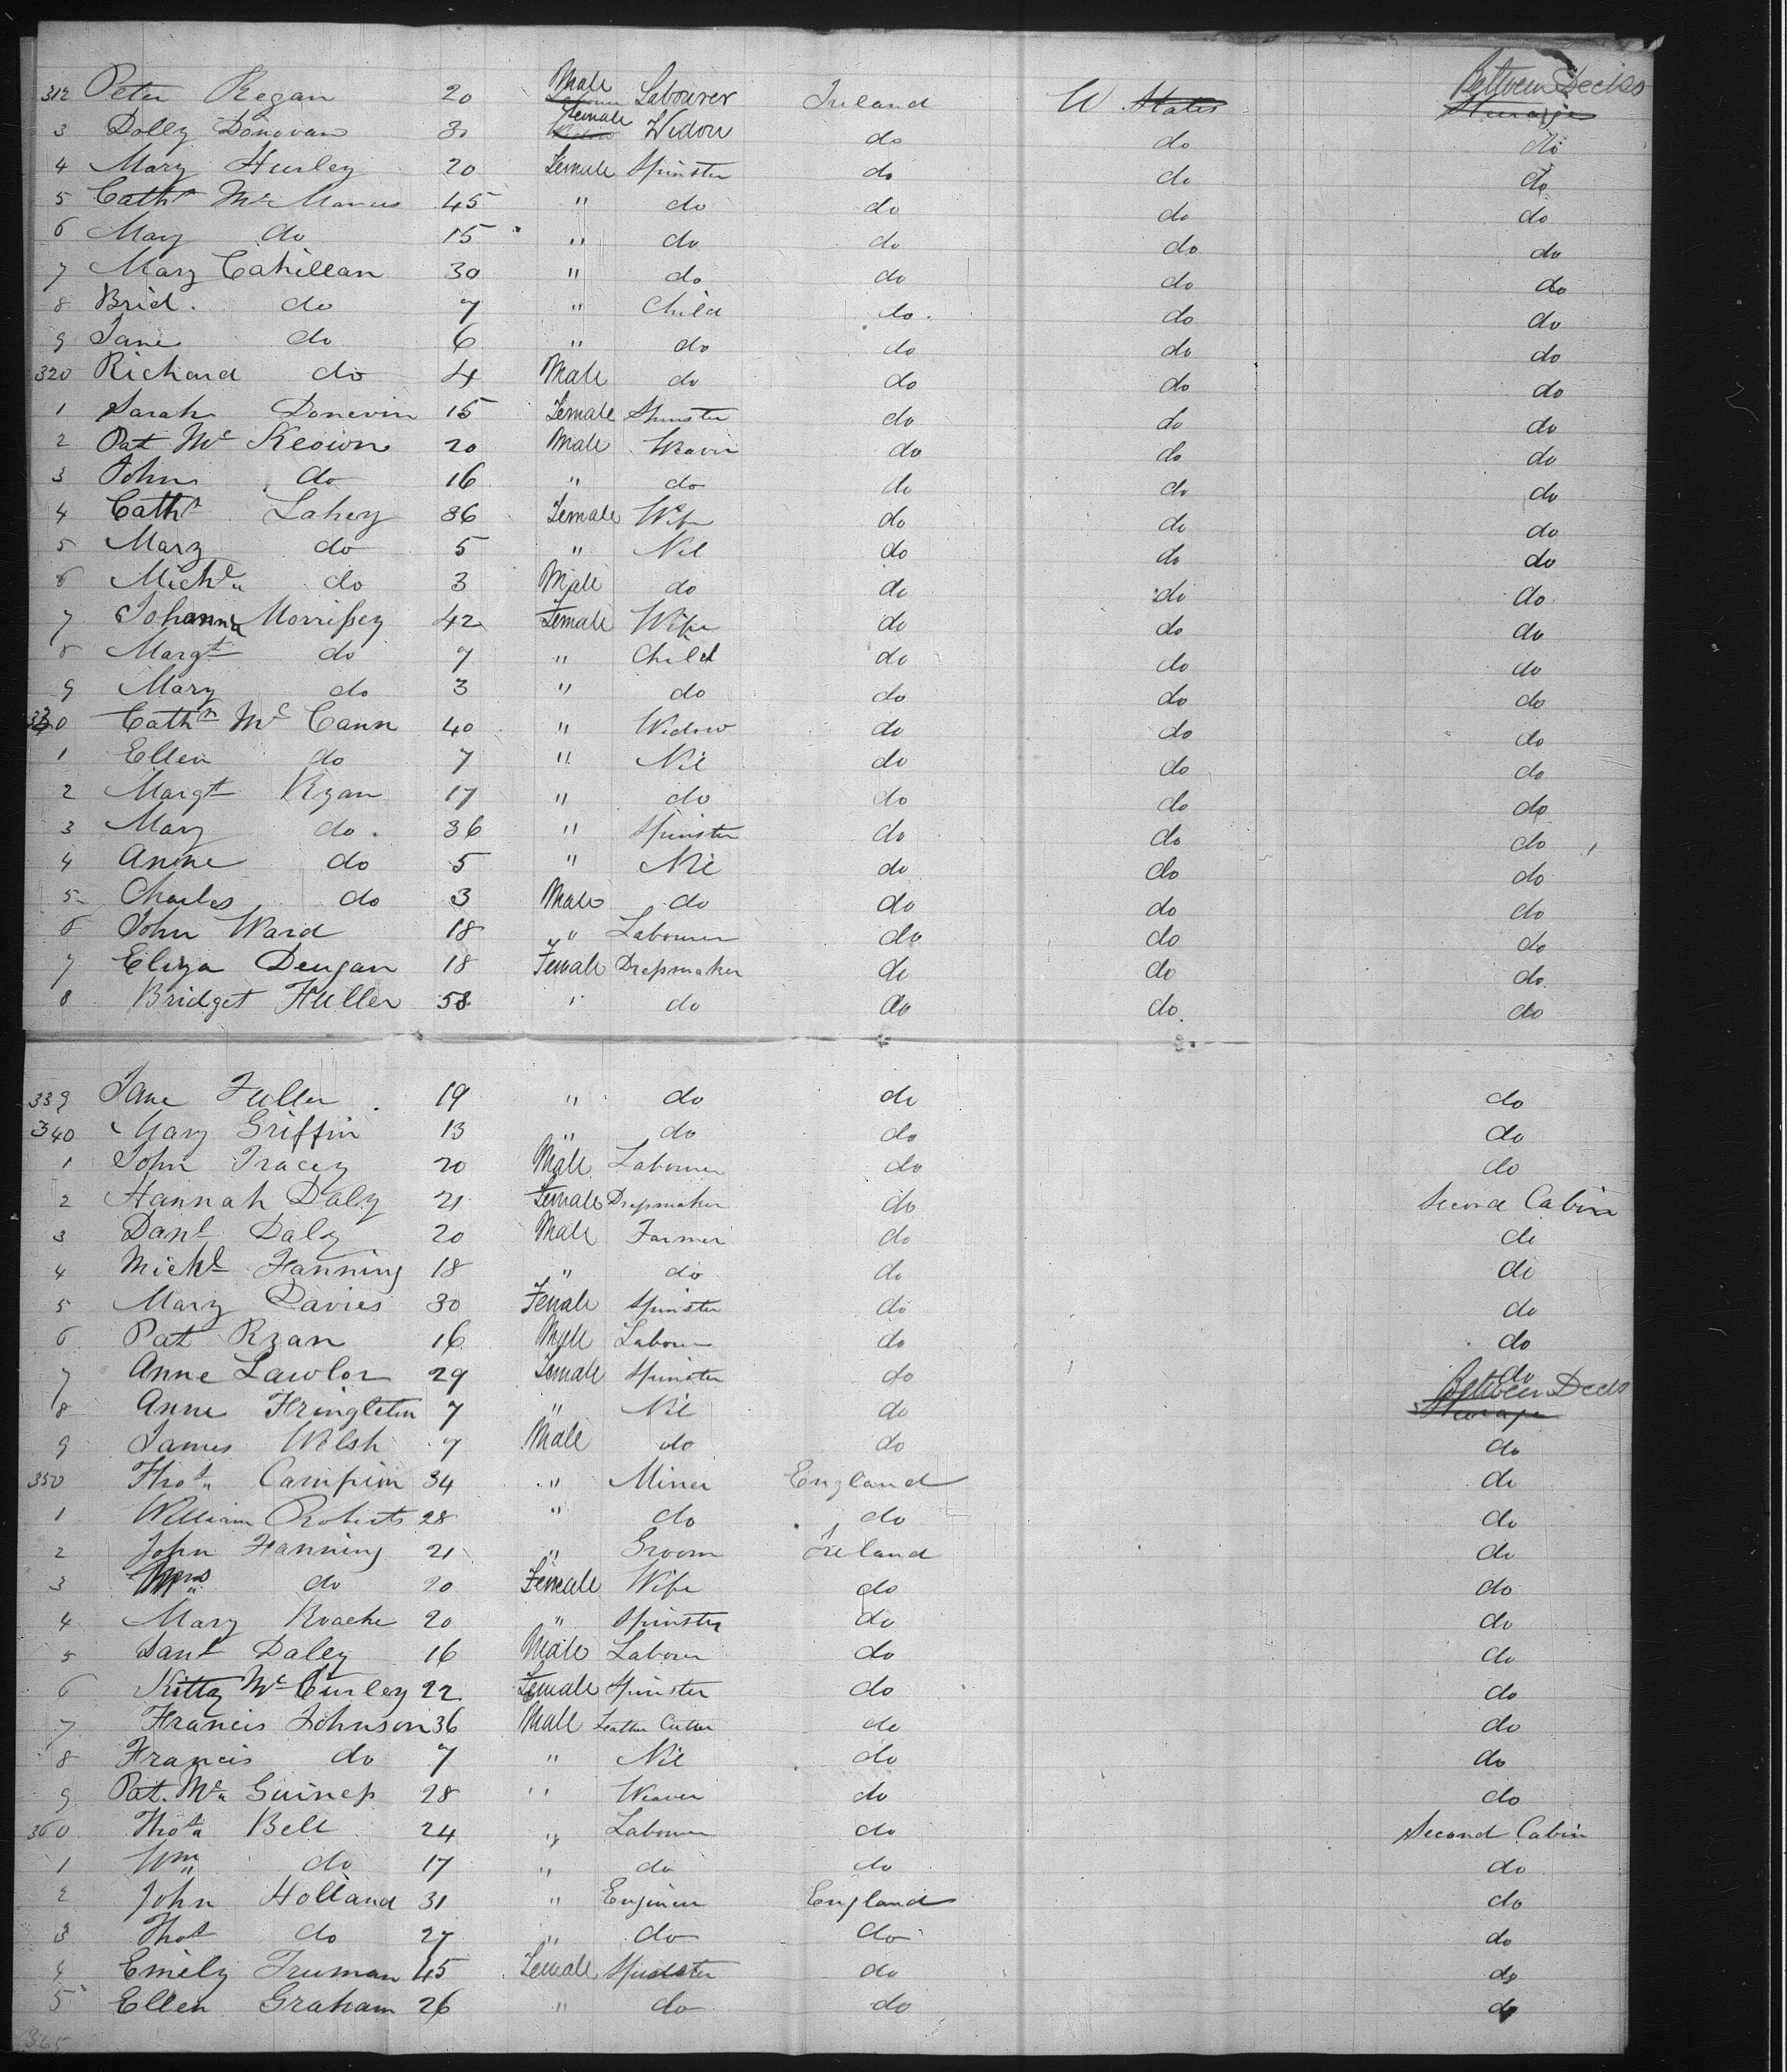 312 Peter Regan 20 Male Labourer Ireland U States Between Decks
3 Dolly Donovan 30 Female Widow do do do
4 Mary Hurley 20 Female Spinster do do do
5 Cathn Mc Manus 45 " do do do do
6 Mary do 15 " do do do do
7 Mary Cahillan 30 " do do do do
8 Brid. do 7 " Child do. do do
9 Jane do 6 " do do do do
320 Richard do 4 Male do do do do
1 Sarah Donevin 15 Female Spinster do do do
2 Pat Mc Keown 20 Male Weaver do do do
3 John do 16 " do do do do
4 Cathn Lahey 36 Female Wife do do do
5 Mary do 5 " Nil do do do
6 Michl do 3 Male do do do do
7 Johanna Morrissey 42 Female Wife do do do
8 Margt do 7 " Child do do do
9 Mary do 3 " do do do do
330 Cathn Mc Cann 40 " Widow do do do
1 Ellen do 7 " Nil do do do
2 Margt Ryan 17 " do do do do
3 Mary do. 36 " Spinster do do do
4 Anne do 5 " Nil do do do
5 Charles do 3 Male do do do do
6 John Ward 18 " Labourer do do do
7 Eliza Deugan 18 Female Dressmaker do do do
8 Bridget Fuller 58 " do do do. do
339 Jane Fuller 19 " do do do
340 Mary Griffin 13 " do do do
1 John Tracey 20 Male Labourer do do
2 Hannah Daly 21 Female Dressmaker do Second Cabin
3 Danl Daly 20 Male Farmer do do
4 Michl Fanning 18 " do do do
5 Mary Davies 30 Female Spinster do do
6 Pat Ryan 16 Male Labour do do
7 Anne Lawlor 29 Female Spinster do do
8 Anne Fringleton 7 " Nil do Between Decks
9 James Welsh 7 Male do do do
350 Thos Campion 34 " Miner England do
1 William Roberts 28 " do do do
2 John Fanning 21 " Groom Ireland do
3 Mrs do 20 Female Wife do do
4 Mary Roache 20 " Spinster do do
5 Danl Daley 16 Male Labourer do do
6 Kitty Mc Curley 22 Female Spinster do do
7 Francis Johnson 36 Male Leather Cutter do do
8 Francis do 7 " Nil do do
9 Pat. Mc Guiness 28 " Weaver do do
360 Thos Bell 24 " Labourer do Second Cabin
1 Wm do 17 " do do do
2 John Holland 31 " Engineer England do
3 Thos do 27 " do do do
4 Emily Truman 45 Female Spinster do do
5 Ellen Graham 26 " do do do
365